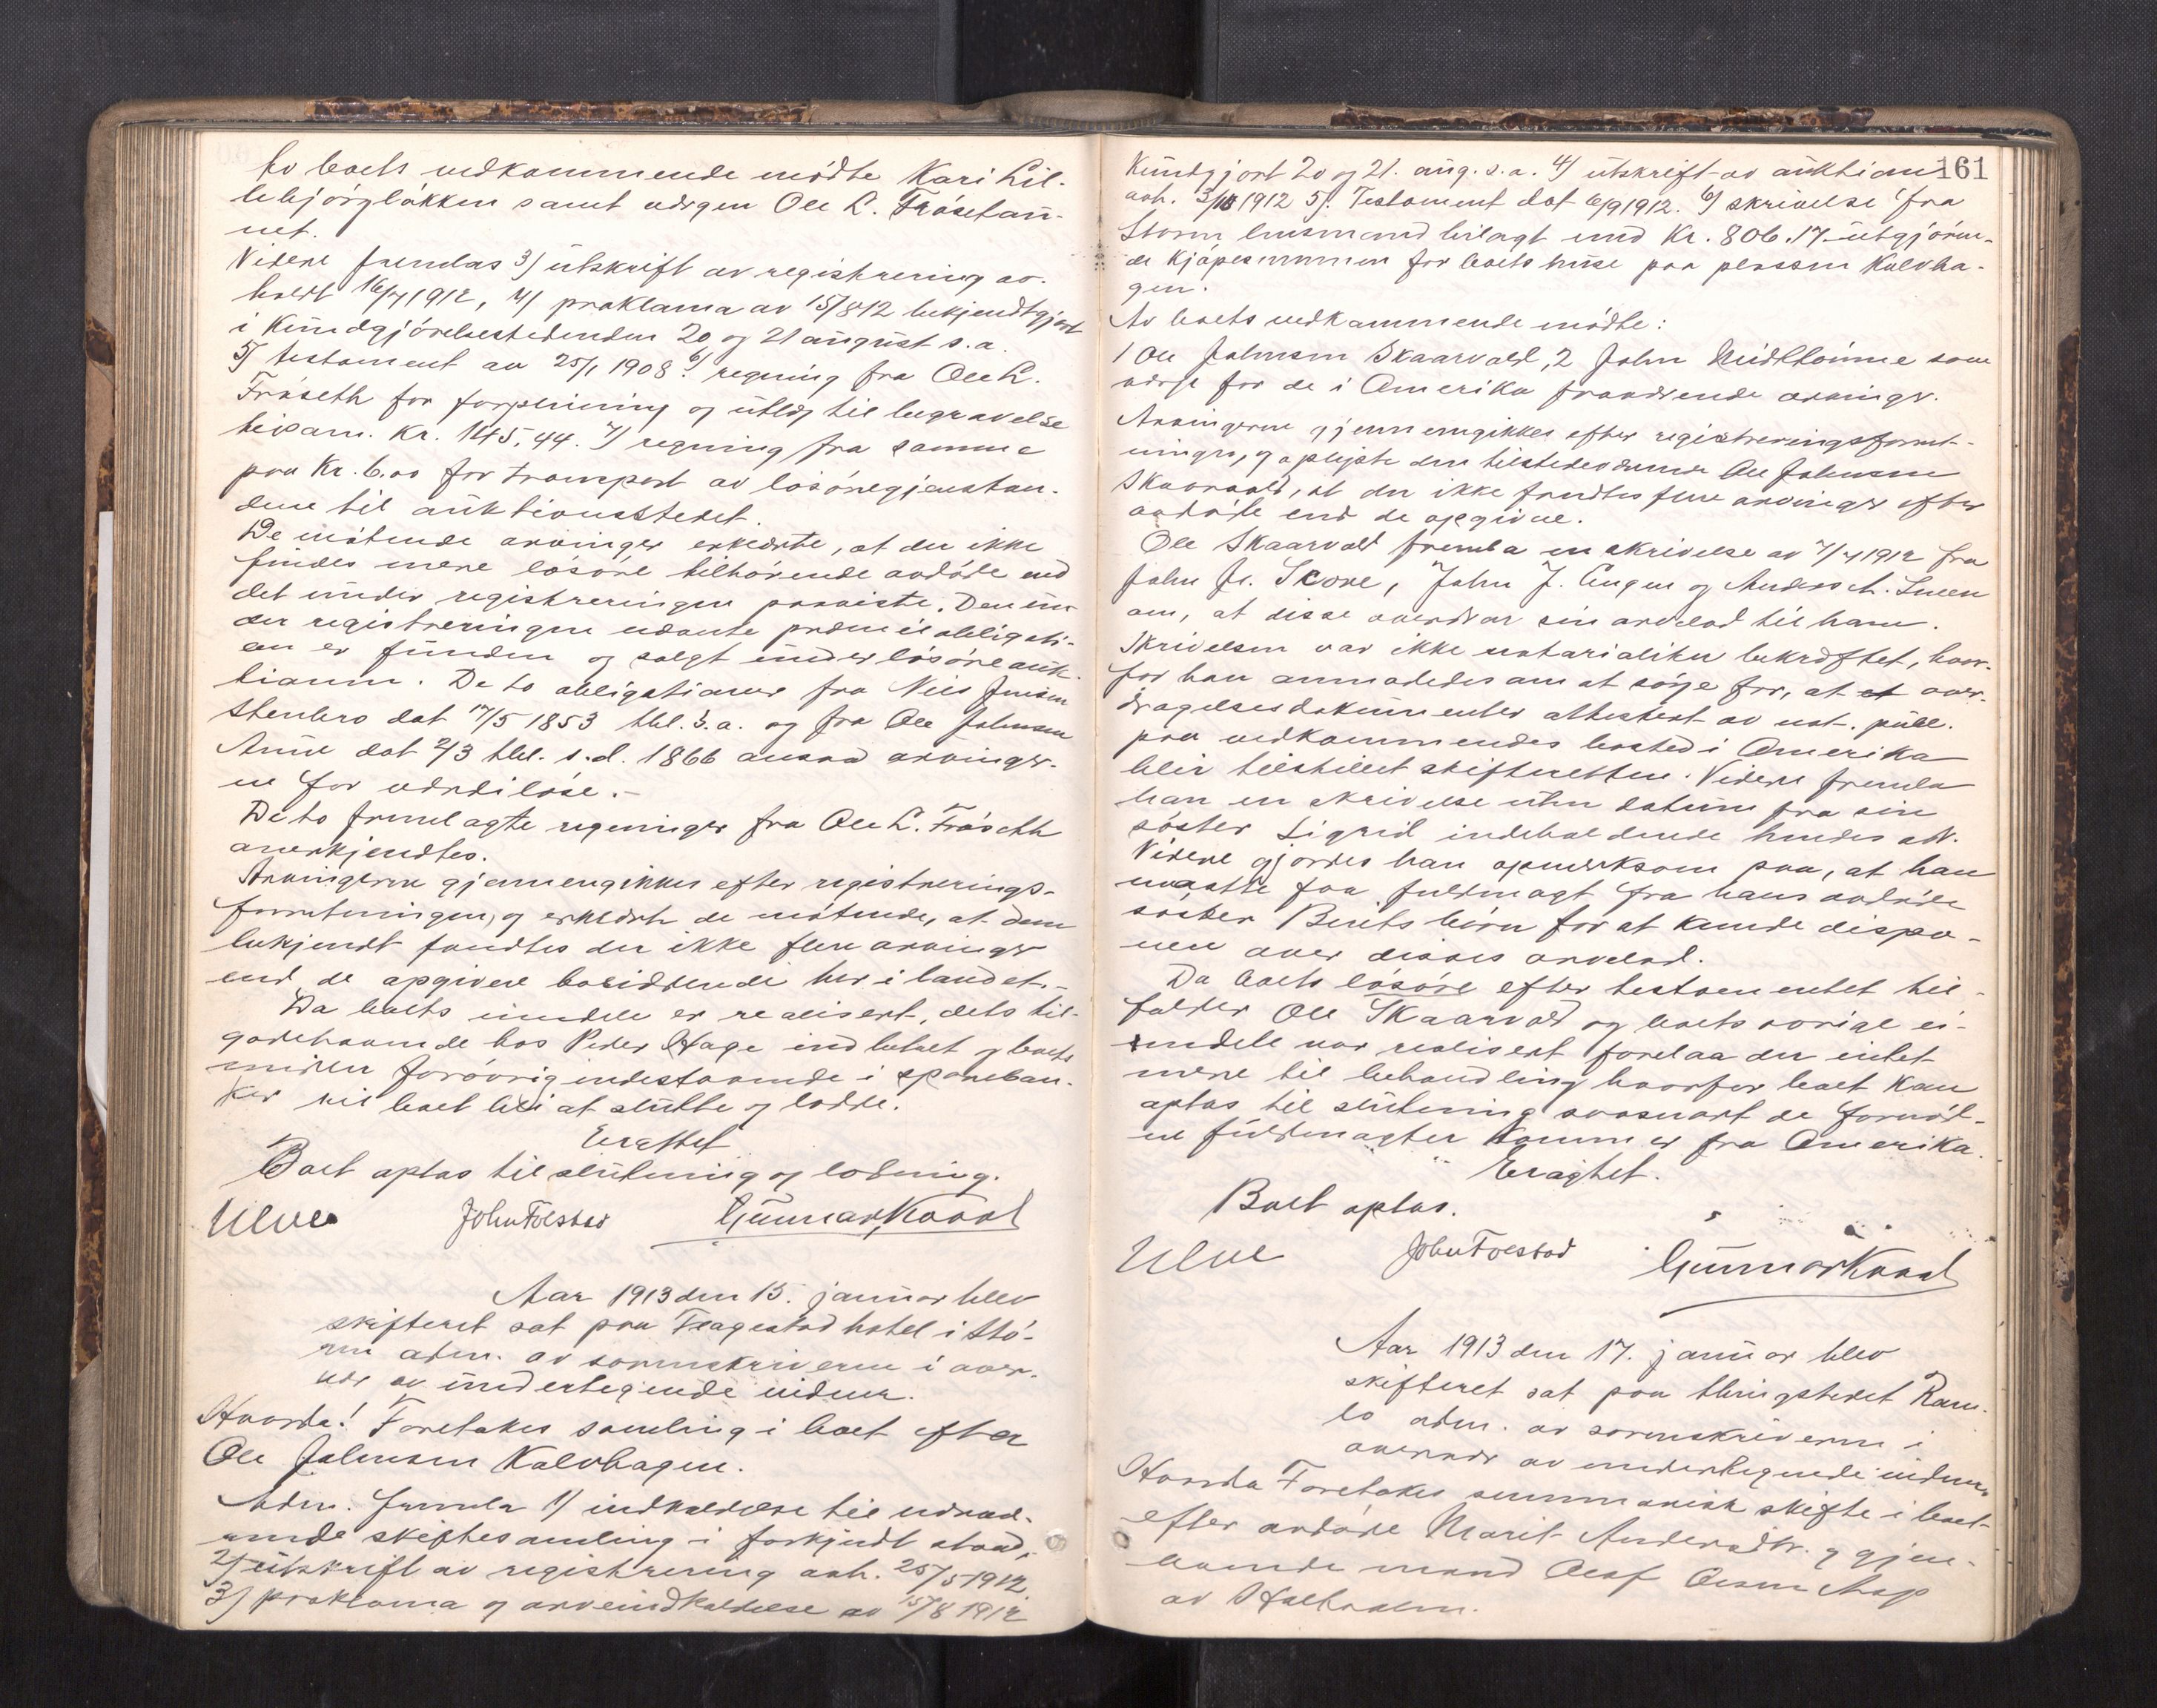 Av boets vedkommende mödte Kari Lil-
lebjörgløkken samt værgen Ole L. Fröset an-
net.
Videre fremlas 3) utskrift av registrering av-
holdt 16/7 1912, 4) proklama av 15/8 12 bekjendtgjort
i Kundgjörelsestidenden 20 og 21 august s.a.
5) testament av 25/1 1908. 6) regning fra Ole L.
Fröseth for forpleining og utlæg til begravelse
tilsam. Kr. 145,44. 7) regning fra samme
paa Kr. 6.00 for transport av lösöregjenstan-
dene til auktionsstedet.
De mötende arvinger erklærte, at der ikke
findes mere lösöre tilhörende avdöde end
det under registreringen paaviste. Den un-
der registreringen nævnte præmieobligati-
on er funden og solgt under lösöreauk-
tionen. De to obligationer fra Nils Jensen
Stenbro dat 17/5 1853 thl. s.a. og fra Ole Johnsen
Aune dat 2/3 thl. s.d. 1866 ansaa arvinger-
ne for værdilöse.-
De to fremlagte regninger fra Ole L. Fröseth
anerkjendtes.
Arvingerne gjennemgikkes efter registrerings-
forretningen, og erklærte de mötende, at dem
bekjendt fandtes der ikke flere arvinger
end de opgivne bosiddende her i landet.-
Da boets midler er realisert, dets til-
godehavende hos Peder Hage indbetalt og boets
midler forövrig indestaaende i spareban-
ker vil boet bli at slutte og lodde.
Eragtet
Boet optas til slutning og lodning.
Ulve John Folstad Gunnar Kvaal
Aar 1913 den 15. januar blev
skifteret sat paa Fragestad hotel i Stö-
ren adm. av sorenskriveren i over-
vær av undertegnede vidner.
Hvorda! Foretokes samling i boet efter
Ole Johnsen Kalvhagen.
Adm. fremla 1) indkaldelse til nærvæ-
rende skiftesamling i forkyndt stand,
2) utskrift av registrering avh. 25/5 1912,
3) proklama og arveindkaldelse av 15/8 1912
161
Kundgjort 20 og 21. aug. s.a. 4) utskrift av auktion
avh. 3/10 1912 5). Testament dat 6/9 1912. 6) skrivelse fra
Störens lensmand bilagt med Kr. 806.17 utgjören-
de kjöpesummen for boets huse paa plassen Kalvha-
gen.
Av boets vedkommende mödte:
1 Ole Johnsen Skaarvold, 2 John Midttömme som
værge for de i Amerika fraværende arvinger.
Arvingerne gjennemgikkes efter registreringsforret-
ningen, og oplyste den tilstedeværende Ole Johnsen
Skaarvold, at der ikke fandtes flere arvinger efter
avdöde end de opgivne.
Ole Skaarvold fremla en skrivelse av 7/7 1912 fra
John Js. Score, John J. Engen og Anders A. Sneen
om, at disse overdrar sin arvelod til ham.
Skrivelsen var ikke notarialiter bekræftet, hvor-
for han anmodedes om at sörge for, at et over-
dragelsesdokumenter attestert av not. publ.
paa vedkommendes bosted i Amerika
blir tilstillet skifteretten. Videre fremla
han en skrivelse uten datum fra sin
söster Sigrid indeholdende hendes adr.
Videre gjordes han opmerksom paa, at han
maatte faa fuldmagt fra hans avdöde
söster Berits börn for at kunde dispo-
nere over disses arvelod.
Da boets lösöre efter testamentet til-
falder Ole Skaarvold og boets övrige ei-
endele var realisert forelaa der intet
mere til behandling hvorfor boet kan
optas til slutning saasnart de fornöd-
ne fuldmagter kommer fra Amerika.
Eragtet.
Boet optas.
Ulve John Folstad Gunnar Kvaal
Aar 1913 den 17. januar blev
skifteret sat paa thingstedet Ram-
lo adm. av sorenskriveren i
overvær av undertegnede vidner.
Hvorda Foretokes summarisk skifte i boet
efter avdöde Marit Andersdtr. og gjen-
levende mand Oluf Olsen Aasp
av Haltdalen.